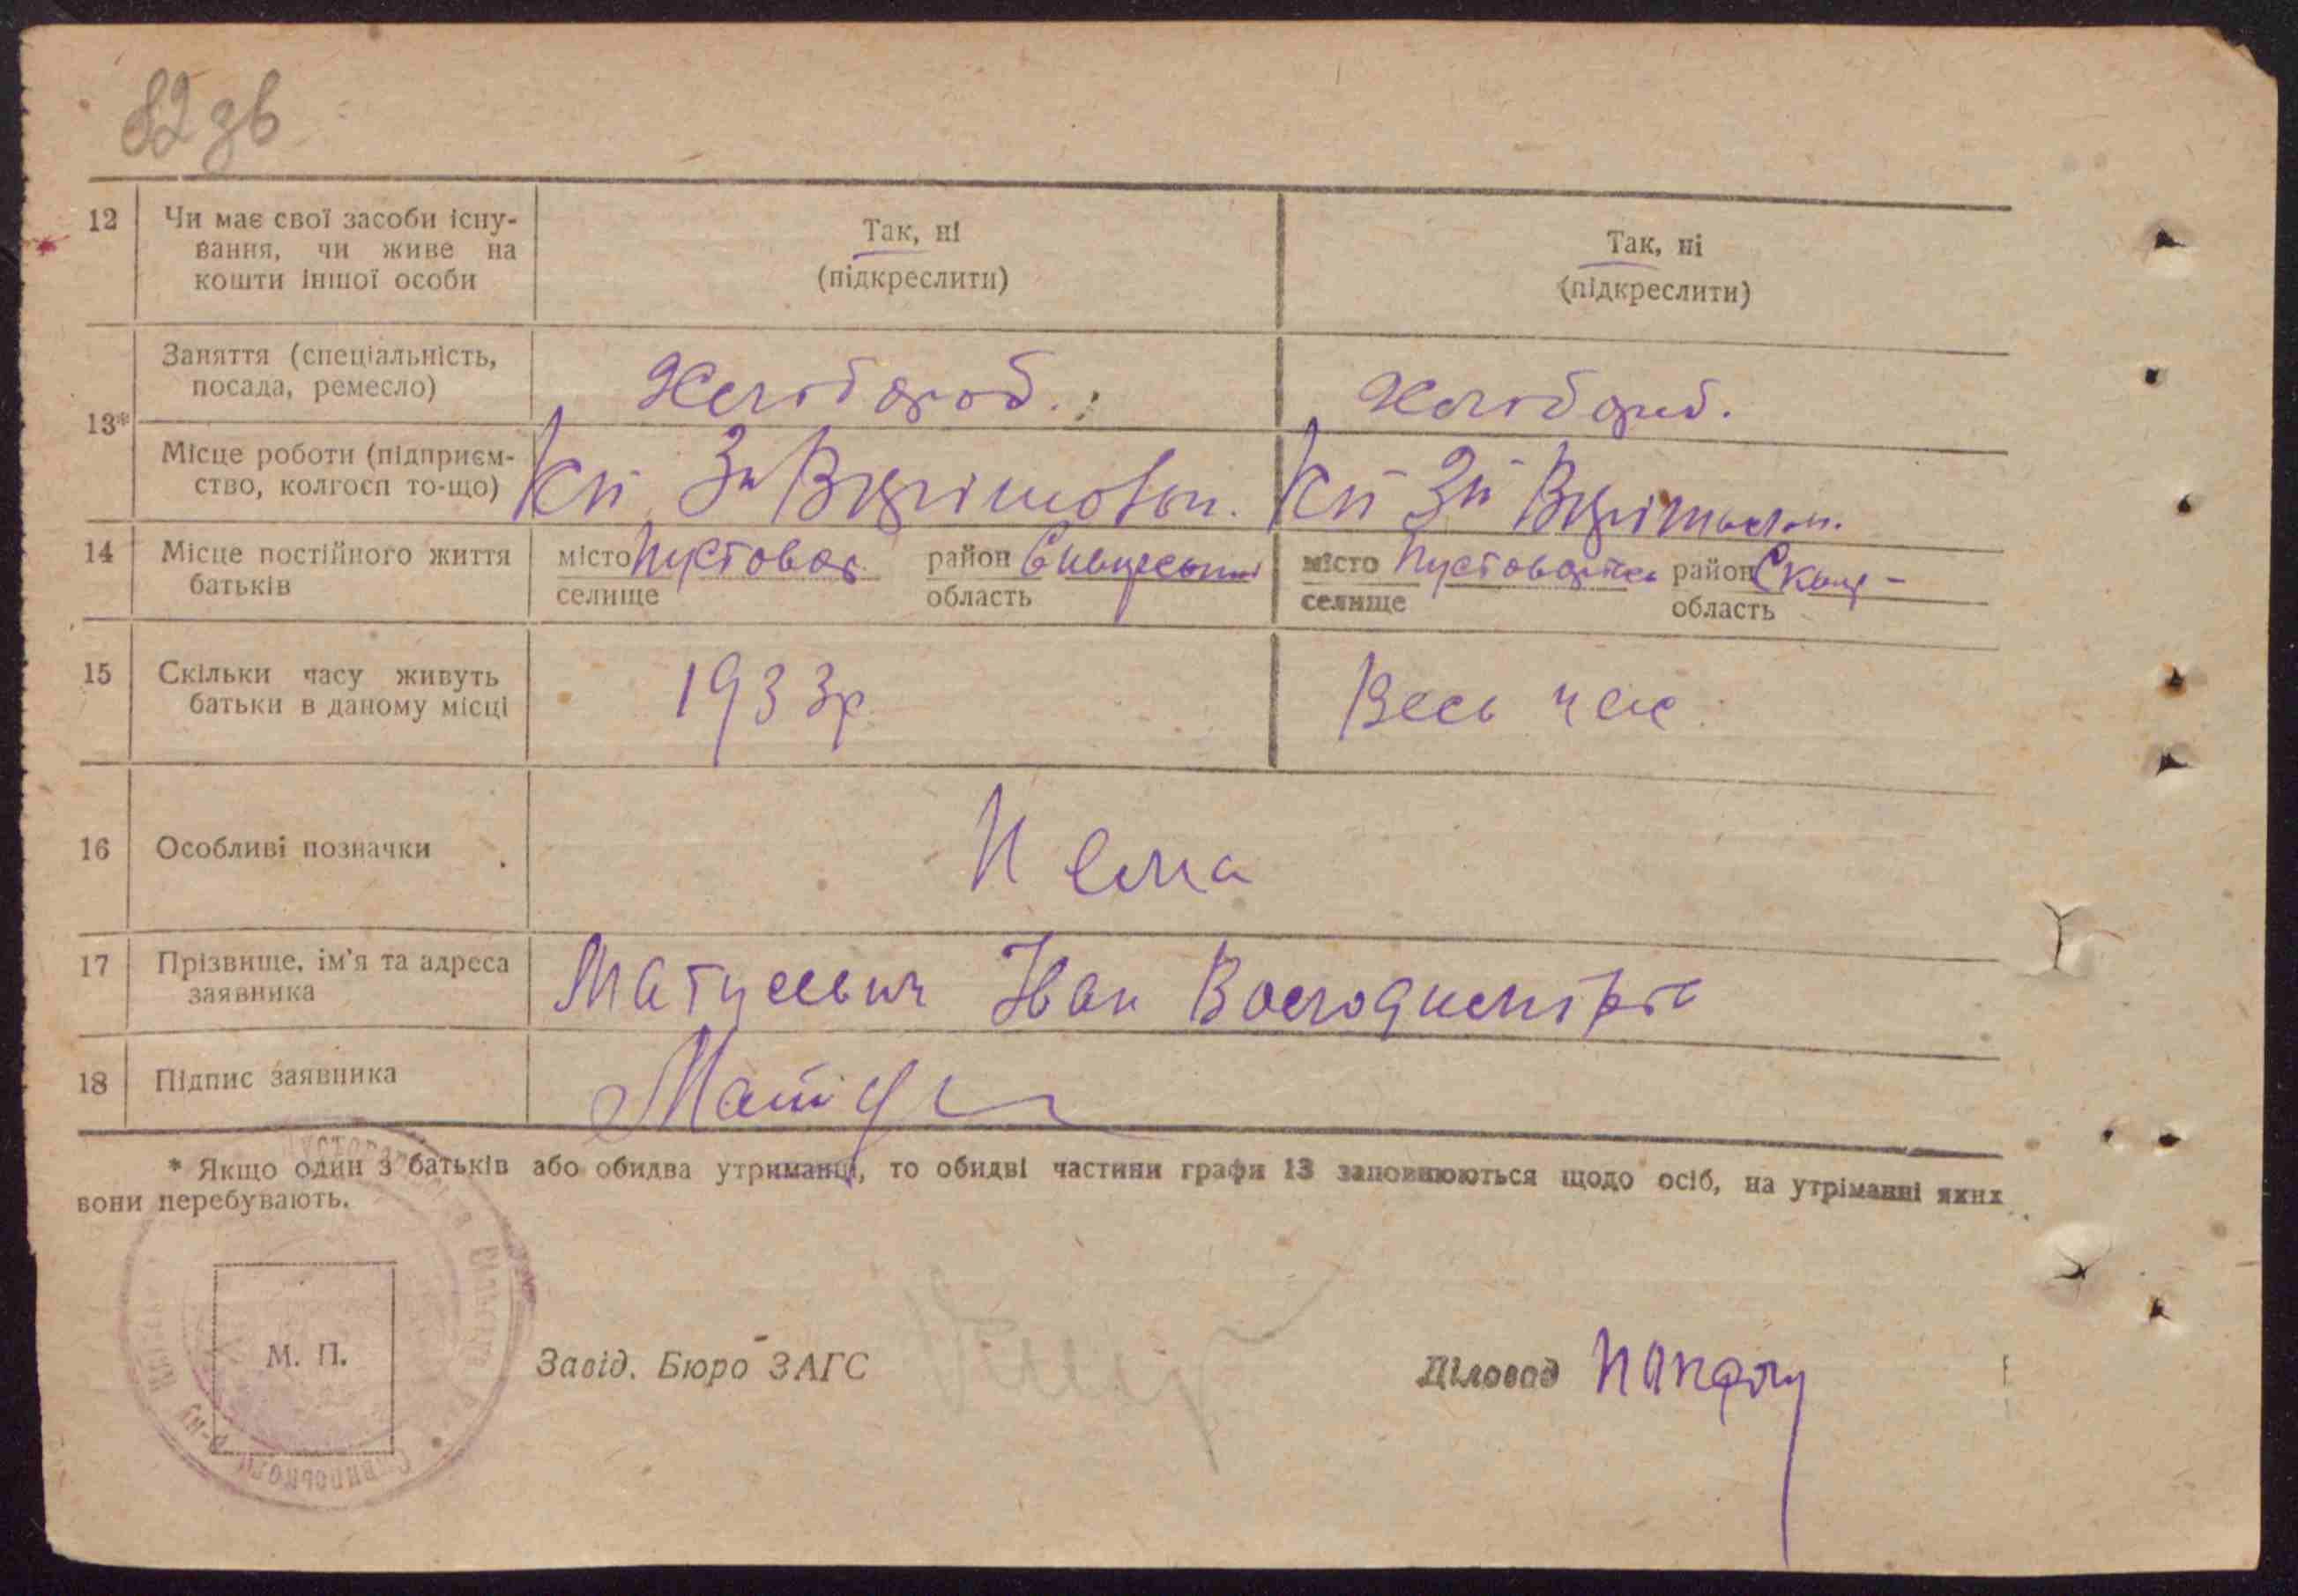 82 зв
12 Чи має свої засоби існу- Так, ні Так, ні
вання, чи живе на
кошти іншої особи (підкреслити) (підкреслити)
Заняття (спеціальність,
посада, ремесло) Хлібороб. Хлібороб.
13*
Місце роботи (підприєм-
ство, колгосп то-що)
14 Місце постійного життя місто район місто район Сквир-
батьків селище область селище область
15 Скільки часу живуть 1933р. Весь час
батьки в даному місці
16 Особливі позначки Нема
17 Прізвище, ім'я та адреса Матусевич Іван Володимирів
заявника
18 Підпис заявника
* Якщо один з батьків або обидва утриманці, то обидві частини графи 13 заповнюються щодо осіб, на утріманні яких
вони перебувають.
М. П. Завід. Бюро ЗАГС Діловод